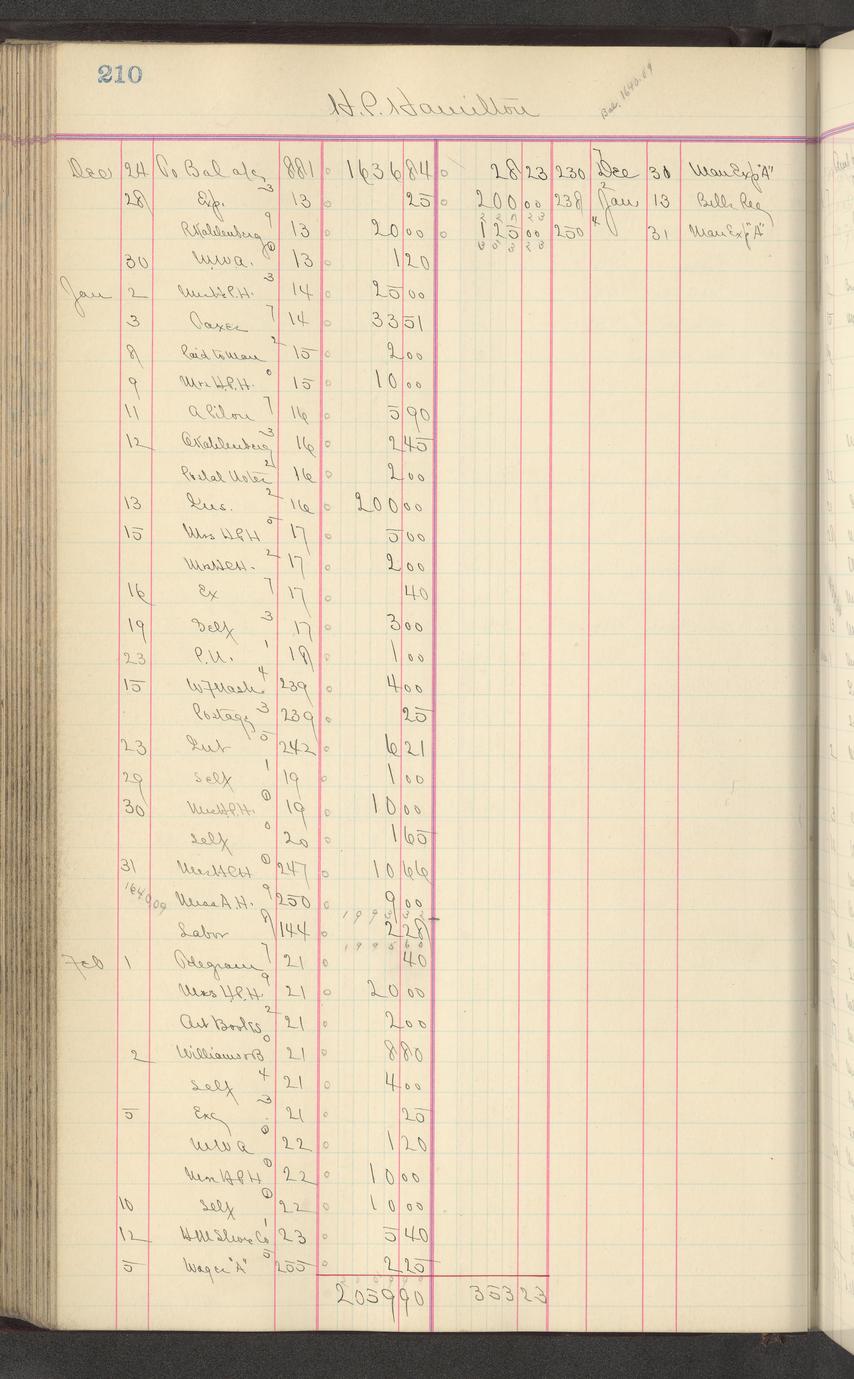 210
H.P. Hamilton
Bal. 1640.09
Dec 24 To Bal a/c 881 1636 84 28 23 230 7 Dec 30 Man Exp "A"
28 Exp. 3 13 25 200 00 238 2 Jan 13 Bills Rec
9 13 20 00 125 00 250 4 31 Man Exp "A"
353 23
30 M.W.A. 0 13 1 20
Jan 2 Mrs H.P.H. 3 14 25 00
3 Taxes 7 14 33 51
8 Paid to Man 2 15 2 00
9 Mrs H.P.H. 0 15 10 00
11 A Pilon 7 16 5 90
12 3 16 2 45
Postal Notes 2 16 2 00
13 Ins. 2 16 200 00
15 Mrs H.P.H 5 17 5 00
2 17 2 00
16 Ex 7 17 40
19 Self 3 17 3 00
23 P.N. 1 18 1 00
15 W F Nash 4 239 4 00
Postage 3 239 25
23 Int 5 242 6 21
29 Self 1 19 1 00
30 Mrs H.P.H. 0 19 10 00
Self 0 20 1 65
31 Mrs H.P.H 0 247 10 66
1640.09 Miss A.H. 9 250 9 00
1993 32
Labor 8 144 2 28
1995 60
Feb 1 Telegram 7 21 40
Mrs H.P.H. 9 21 20 00
Art Books 2 21 2 00
2 Williams 0 21 8 80
Self 4 21 4 00
5 Exc 3 21 25
M W A 0 22 1 20
Mrs H.P.H 0 22 10 00
10 Self 0 22 10 00
12 H M Shoe Co 1 23 5 40
5 Wages "A" 5 255 2 25
2059 90 353 23